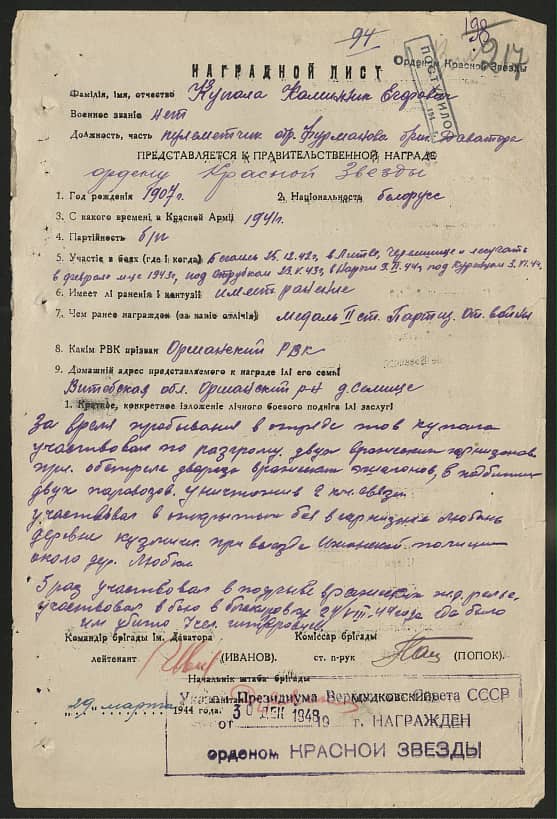 94
198
217
Орденом Красной Звезды
ПОСТУПИЛО
НАГРАДНОЙ ЛИСТ
Фамілія, імя, отчество Купала Калинник Егорович
Военное званіе нет
Должность, часть пулеметчик отр. Фурманова бриг. Даватора
ПРЕДСТАВЛЯЕТСЯ К ПРАВИТЕЛЬСТВЕННОЙ НАГРАДЕ
ордену Красной Звезды
1. Год рожденія 1907г. 2. Національность белорусс
3. С какого времені в Красной Армії 1941г.
4. Партійность б/п
5. Участіе в боях (где і когда) 25.12.42г. в
в феврале м-це 1943г, под 23.V.43г, в 44г, под
6. Имеет лі раненія і контузії имеет ранение
7. Чем ранее награжден (за какіе отлічія) медаль II ст. Партиз. От. войны
8. Какім РВК прізван Оршанский РВК
9. Домашній адрес представляемого к награде ілі его семьі
Витебская обл. Оршанский р-н д. Селище
1. Краткое, конкретное ізложеніе лічного боевого подвіга ілі заслугі
За время пребывания в отряде тов Купала
участвовал по разгрому двух вражеских гарнизонов
при обстреле дважды вражеских эшалонов,
двух паровозов. уничтожив 2 км. связи
участвовал в открытом бою в гарнизоне Любань
деревне при полиции
около дер. Любань
5 раз участвовал в подрыве вражеских ж.д. рельс,
участвовал в бою в 44 года где было
им убито
Командір брігады ім. Даватора Комиссар брігады
лейтенант (ИВАНОВ). ст. п-рук (ПОПОК).
Начальнік штаба брігады
Указом Президиума Верховного Совета СССР
29 марта 1944 года.
от 30 ДЕК 1948 19 г. НАГРАЖДЕН
орденом КРАСНОЙ ЗВЕЗДЫ